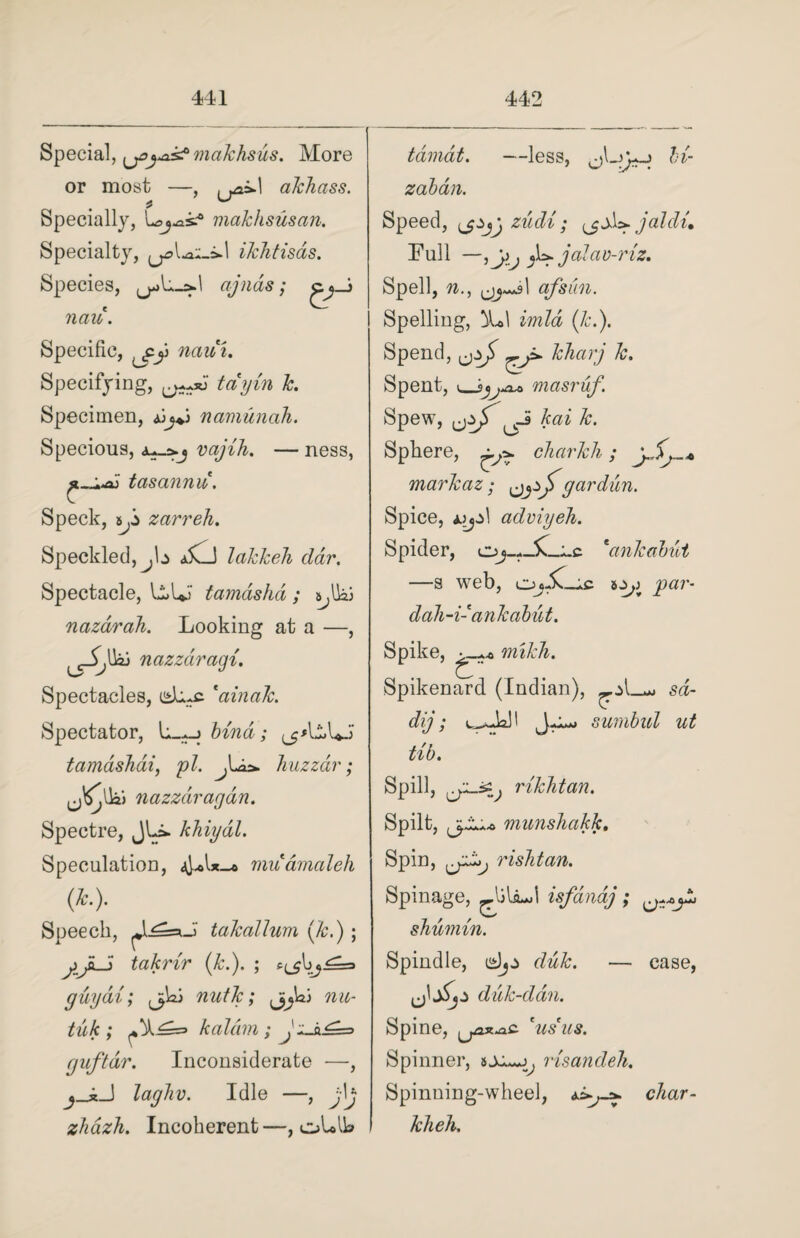 441
442
Special, مخصوص makhsús. More
or most —, اخص akhass.
Specially, مخصوصاً makhsúsan.
Specialty, اختصاص ikhtisás.
Species, اجناس ajnás; نوع
nau‘.
Specific, نوعی nau‘í.
Specifying, تعیین ta‘yín k.
Specimen, نمونه namúnah.
Specious, وجیه vajíh. — ness,
تصنع tasannu‘.
Speck, ذره zarreh.
Speckled, لکه دار lakkeh dár.
Spectacle, تماشا tamáshá; نظاره
nazárah. Looking at a —,
نظارگی nazzáragí.
Spectacles, عینک ‘ainak.
Spectator, بینا bíná; تماشائی
tamáshái, pl. حضار huzzár;
نظارگان nazzáragán.
Spectre, خیال khiyál.
Speculation, معامله mu‘ámaleh
(k.).
Speech, تکلم takallum (k.);
تقریر takrír (k.). ; گویائی
gúyáí; نطق nutk; نطوق nu-
túk; کلام kalám; گفتار
guftár. Inconsiderate —,
لغو laghv. Idle —, ژاژ
zházh. Incoherent —, طامات
támát. —less, بیزبان bí-
zabán.
Speed, زودی zúdí; جلدی jaldí.
Full —, جلو ریز jalav-ríz.
Spell, n., افسون afsún.
Spelling, املا imlá (k.).
Spend, خرج کردن kharj k.
Spent, مصروف masrúf.
Spew, قی کردن kai k.
Sphere, چرخ charkh; مرکز
markaz; گردون gardún.
Spice, ادویه adviyeh.
Spider, عنکبوت ‘ankabút
—s web, پرده عنکبوت par-
dah-i-‘ankabút.
Spike, میخ míkh.
Spikenard (Indian), سادج sá-
dij; سنبل الطیب sumbul ut
tíb.
Spill, ریختن ríkhtan.
Spilt, منشق munshakk.
Spin, رشتن rishtan.
Spinage, اسفاناج isfánáj; شومین
shúmín.
Spindle, دوک dúk. — case,
دوکدان dúk-dán.
Spine, عصعص ‘us‘us.
Spinner, ریسنده risandeh.
Spinning-wheel, چرخه char-
kheh.